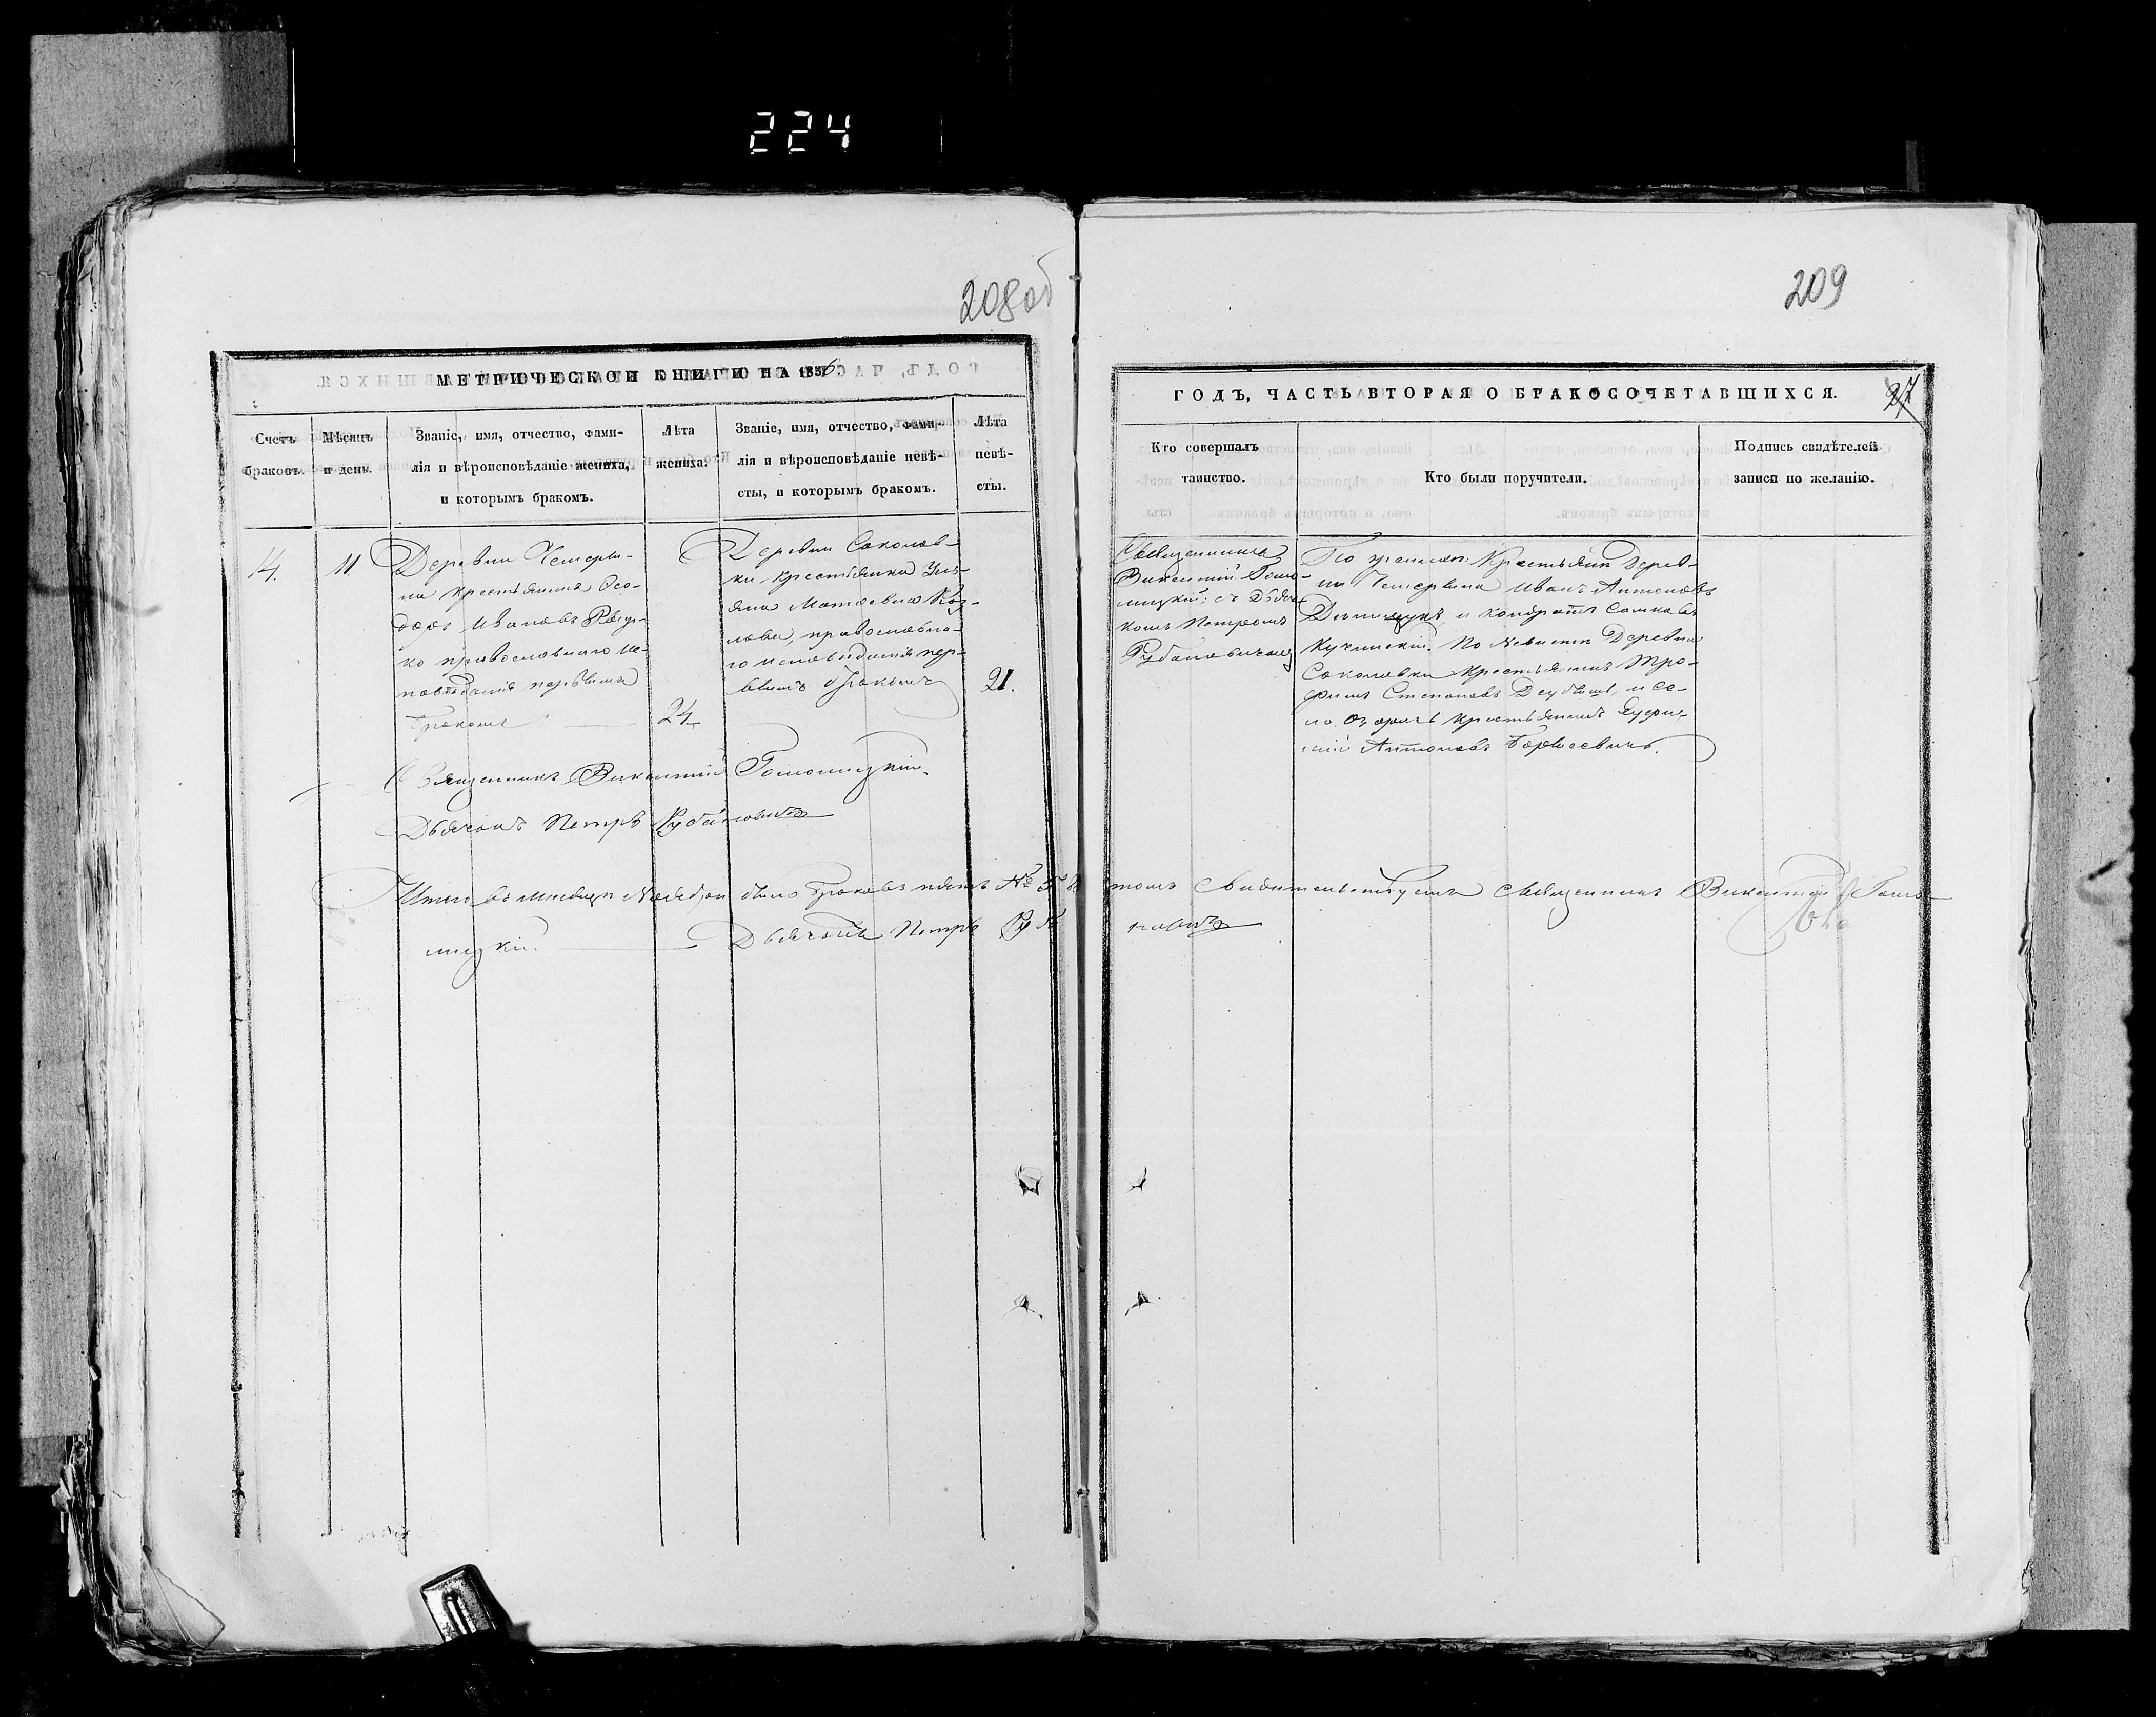 224
208об
209
МЕТРИЧЕСКОЙ КНИГИ НА 1856
ГОДЪ, ЧАСТЬ ВТОРАЯ О БРАКОСОЧЕТАВШИХСЯ.
27
Счетъ
браковъ.
Мѣсяцъ
и день.
Званіе, имя, отчество, фами-
лія и вѣроисповѣданіе жениха,
и которымъ бракомъ.
Лѣта
жениха.
Званіе, имя, отчество, фами-
лія и вѣроисповѣданіе невѣ-
сты, и которымъ бракомъ.
Лѣта
невѣ-
сты.
Кто совершалъ
таинство.
Кто были поручители.
Подпись свидѣтелей
записи по желанію.
14.
11
Деревни Чемеры-
на крестьянинъ Ѳео-
доръ Ивановъ
ко православнаго ис-
повѣданія первымъ
бракомъ
24
Деревни Соколов-
ки крестьянка Уль-
яна Матѳеевна Коз-
лова, православна-
го исповѣданія пер-
вымъ бракомъ
21.
Священникъ
Викентій Гомо-
лицкій съ Дьяч-
комъ Петромъ
Рубановичемъ
По женихѣ: Крестьяне дерев-
ни Чемерына Иванъ Антоновъ
и Кондратъ
Кучинскій. По невѣстѣ Деревни
Соколовки крестьянинъ Тро-
фимъ Степановъ и се-
ла крестьянинъ
Антоновъ
Священникъ Викентій Гомолицкій.
Дьячокъ Петръ Рубановичъ
Итого въ мѣсяцѣ Ноябрѣ было браковъ пять № 5 въ томъ свидѣтельствуемъ Священникъ Викентій Гомо-
лицкій. Дьячокъ Петръ Рубановичъ